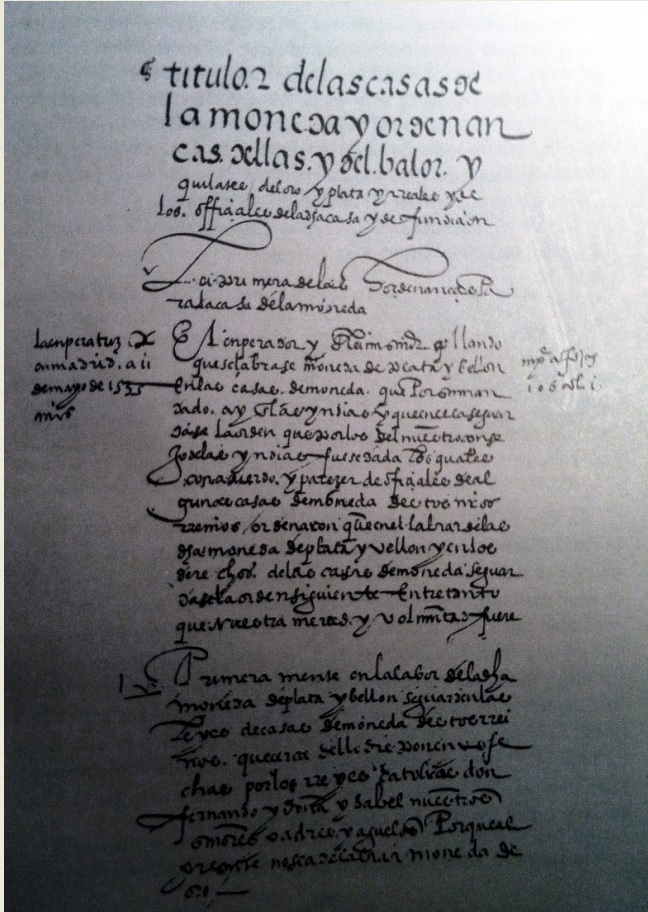 titulo. 2 delas casas de
la moneda y ordenan
cas. dellas. y del. balor. y
quilates, del oro y plata y rreales y de
los. offiçiales dela dha casa y de fundiçion
Lei primera delas hordenanças Pa
ra la casa dela moneda
la enperatriz
en madrid. a 11
de mayo de 1535
El enperador y Rei mandando
que se labrase moneda de plata y bellon
En las casas. de moneda. que Por
dado. ay en las yndias y que en ellas seguar
dase la orden que por los del nuestro conse
Jo delas yndias fuese dada los quales
con acuerdo. y pareçer de ofiçiales de al
gunas casas de moneda destos nros
rreinos, ordenaron que en el labrar de la
dha moneda de plata y vellon y en los
derechos. delas casas de moneda se guar
dase la orden siguiente Entre tanto
que Nuestra merced. y voluntad fuere
1 Primera mente en la labor dela dha
moneda de plata y bellon se guarden las
Leyes de casas de moneda destos rrei
nos. que çerca dello disponen fe
chas por los rreyes Catolicos don
fernando y doña ysabel nuestros
señores padres y aguelos Por que al
presente no se a de labrar moneda de
oro